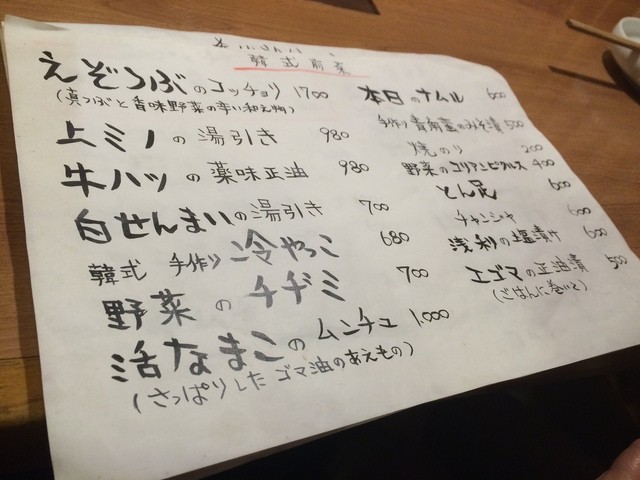 韓式前菜
えぞつぶのコッチョリ 1700
(真つぶと香味野菜の辛い和え物)
上ミノの湯引き 980
牛ハツの薬味正油 980
白せんまいの湯引き 700
韓式 手作り 冷やっこ 680
野菜のチヂミ 700
活なまこのムンチュ 1,000
(さっぱりしたゴマ油のあえもの)
本日のナムル 600
手作り青南蛮のみそ漬 500
焼のり 200
野菜のコリアンピクルス 400
とん足 600
チャンジャ 600
浅利の塩漬け 600
エゴマの正油漬 500
(ごはんに巻いて)